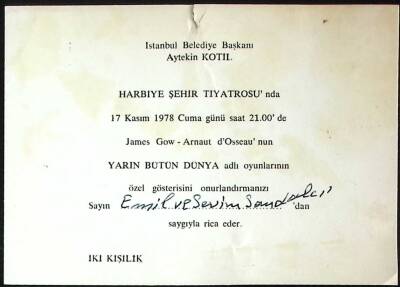 İstanbul Belediye Başkanı
Aytekin KOTİL
HARBİYE ŞEHİR TİYATROSU' nda
17 Kasım 1978 Cuma günü saat 21.00' de
James Gow - Arnaut d'Osseau' nun
YARIN BÜTÜN DÜNYA adlı oyunlarının
özel gösterisini onurlandırmanızı
Sayın Emil ve Sevim Sandalcı 'dan
saygıyla rica eder.
İKİ KİŞİLİK